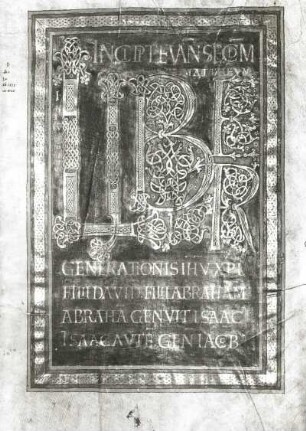 INCIPIT EVAN SECM
MATTHEVM
LIBER
GENERATIONIS IHV XPI
FILII DAVID FILII ABRAHAM
ABRAHA GENVIT ISAAC
ISAAC AVTE GEN IACOB